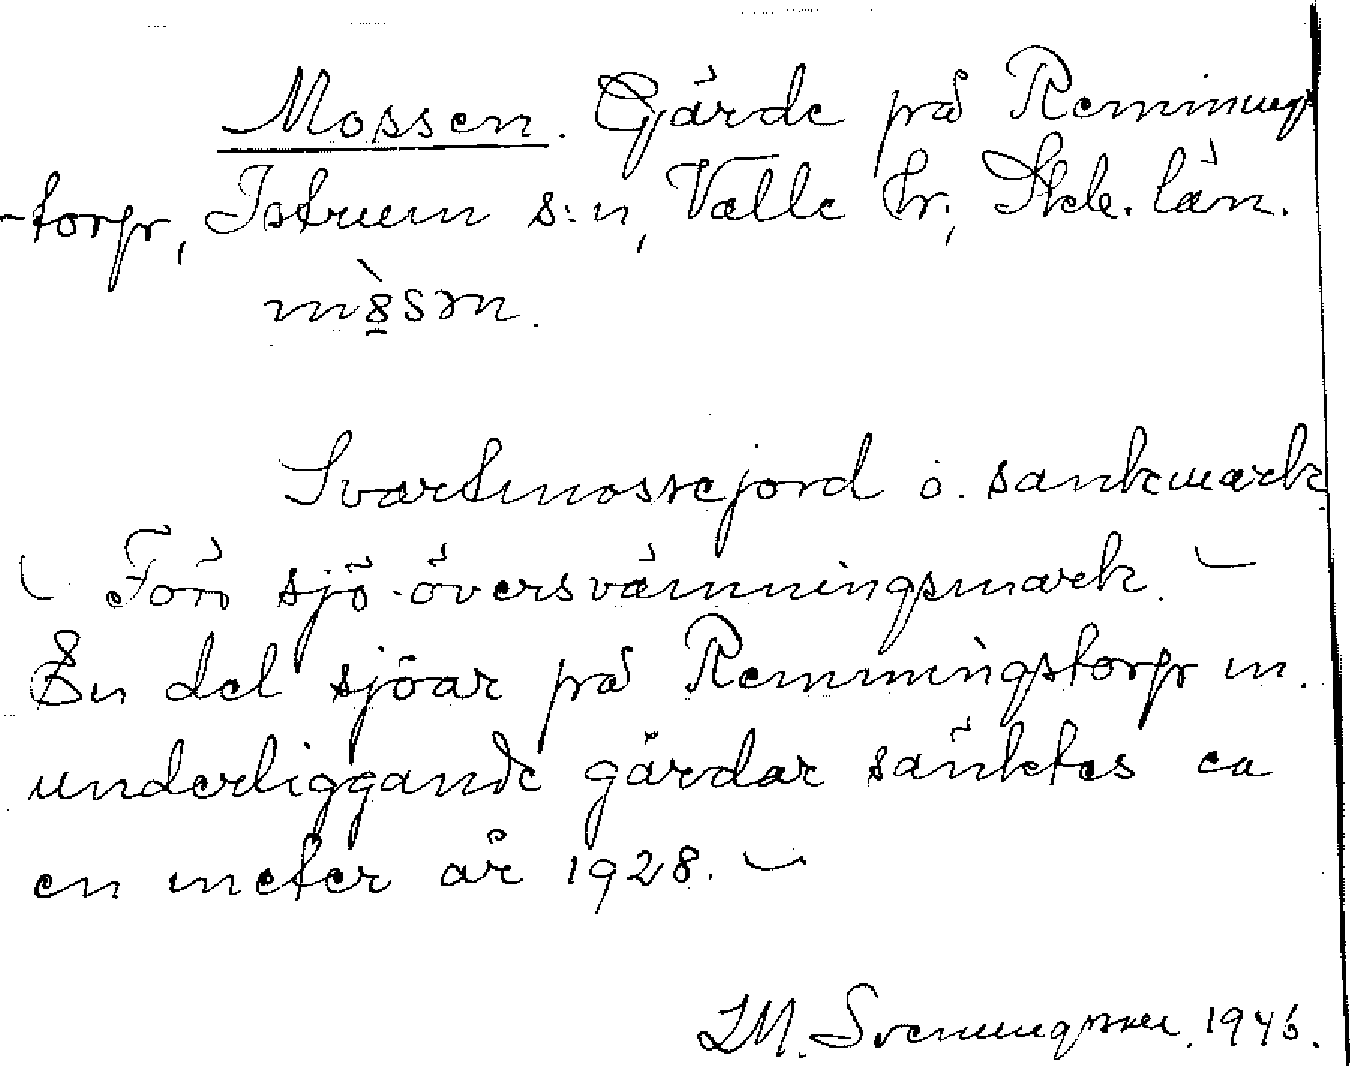 Mossen. Gärde på Remmings-
-torp, Istrum s:n, Valle hr, Skb. län.
mò̤sən.
Svartmossejord o. sankmark
- Förr sjö-översvämningsmark. -
En del sjöar på Remmingstorp m.
underliggande gårdar sänktes ca
en meter år 1928. -
I.M. Svenungsson. 1946.